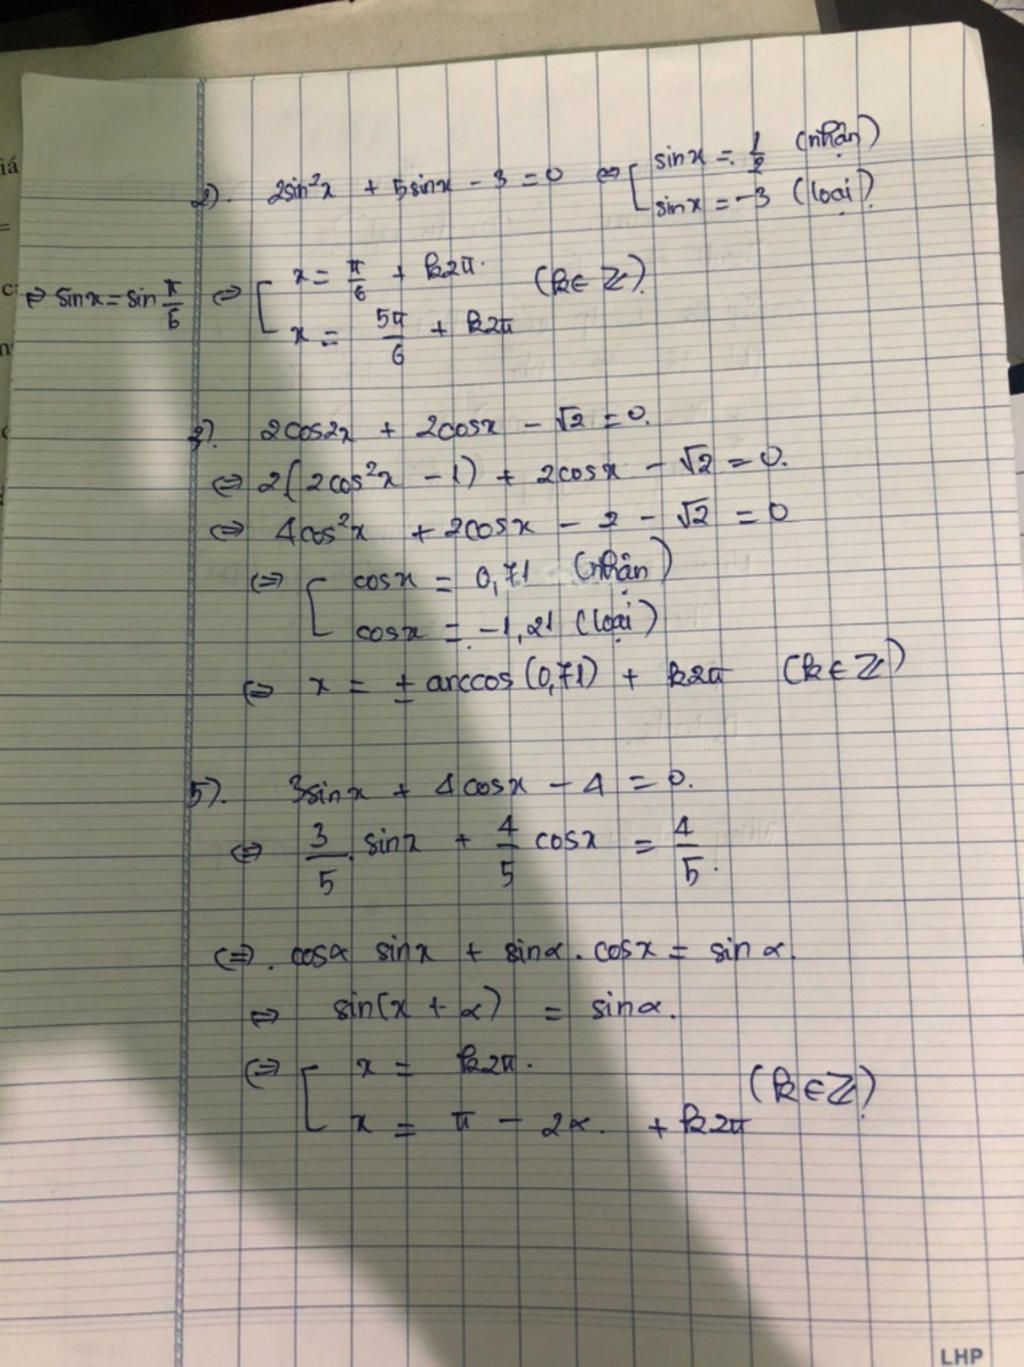 2). 2sin²x + 5sinx - 3 = 0 ⇔ [ sinx = 1/2 (nhận)
sinx = -3 (loại)
⇔ sinx = sin π/6 ⇔ [ x = π/6 + k2π. (k∈Z).
x = 5π/6 + k2π
3). 2cos2x + 2cosx - √2 = 0.
⇔ 2(2cos²x - 1) + 2cosx - √2 = 0.
⇔ 4cos²x + 2cosx - 2 - √2 = 0
⇔ [ cosx = 0,71 (nhận)
cosx = -1,21 (loại)
⇔ x = ± arccos(0,71) + k2π (k∈Z)
5). 3sinx + 4cosx - 4 = 0.
⇔ 3/5 . sinx + 4/5 cosx = 4/5.
⇔. cosα sinx + sinα. cosx = sinα.
⇔ sin(x + α) = sinα.
⇔ [ x = k2π. (k∈Z)
x = π - 2α. + k2π
LHP